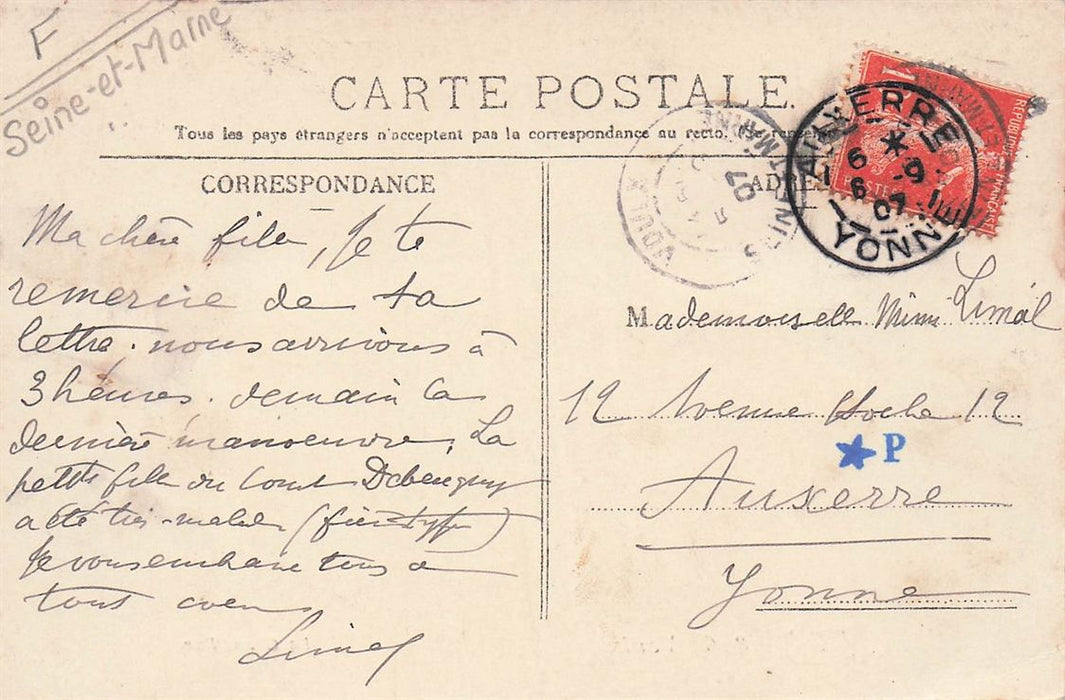 F
Seine-et-Marne
CARTE POSTALE.
Tous les pays étrangers n'acceptent pas la correspondance au recto. (Se renseigner
CORRESPONDANCE
ADRE
Ma chère fille, Je te
remercie de ta
lettre. nous arrivons à
3 heures. demain la
dernière manoeuvre. La
petite fille du Comt
a été très malade (fièvre typh)
Je vous embrasse tous de
tout coeur
Limal
VOULX
SEINE-ET-MARNE
07
AUXERRE
6 * 
6 -9
07
YONNE
RÉPUBLIQUE FRANÇAISE
POSTES
Mademoiselle Mimi Limal
12 Avenue Hoche 12
P
Auxerre
Yonne